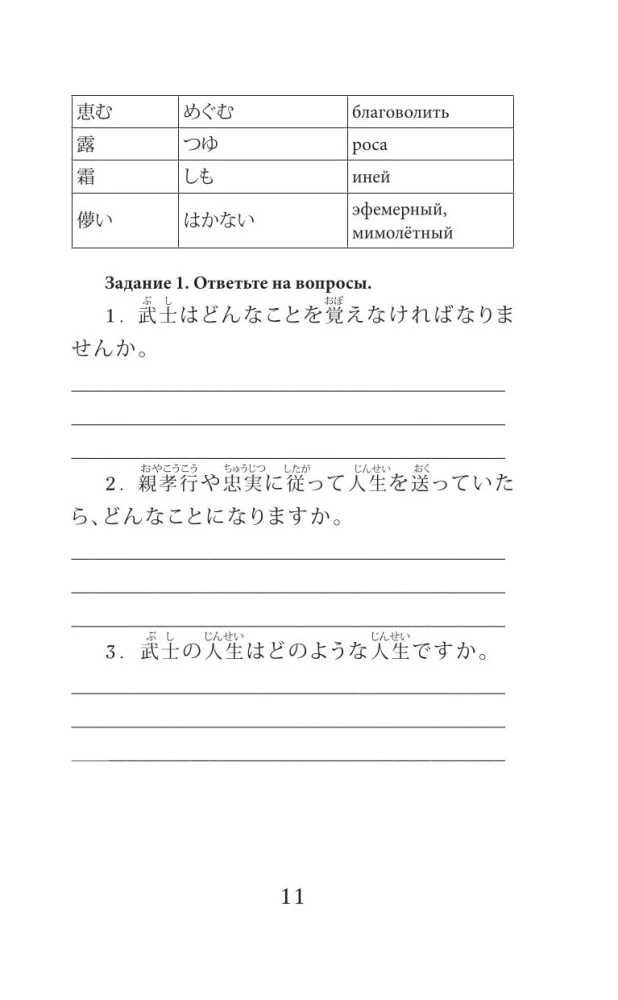 恵む めぐむ благоволить
露 つゆ роса
霜 しも иней
儚い はかない эфемерный,
мимолётный
Задание 1. Ответьте на вопросы.
ぶ し おぼ
1. 武士はどんなことを覚えなければなりま
せんか。
おやこうこう ちゅうじつ したが じんせい おく
2. 親孝行や忠実に従って人生を送っていた
ら、どんなことになりますか。
ぶ し じんせい じんせい
3. 武士の人生はどのような人生ですか。
11